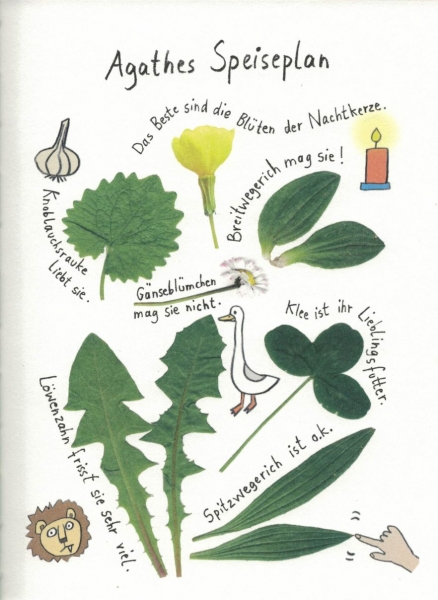 Agathes Speiseplan
Das Beste sind die Blüten der Nachtkerze.
Breitwegerich mag sie!
Knoblauchsrauke
liebt sie.
Gänseblümchen
mag sie nicht.
Klee ist ihr Lieblingsfutter.
Löwenzahn frisst sie sehr viel.
Spitzwegerich ist o.k.